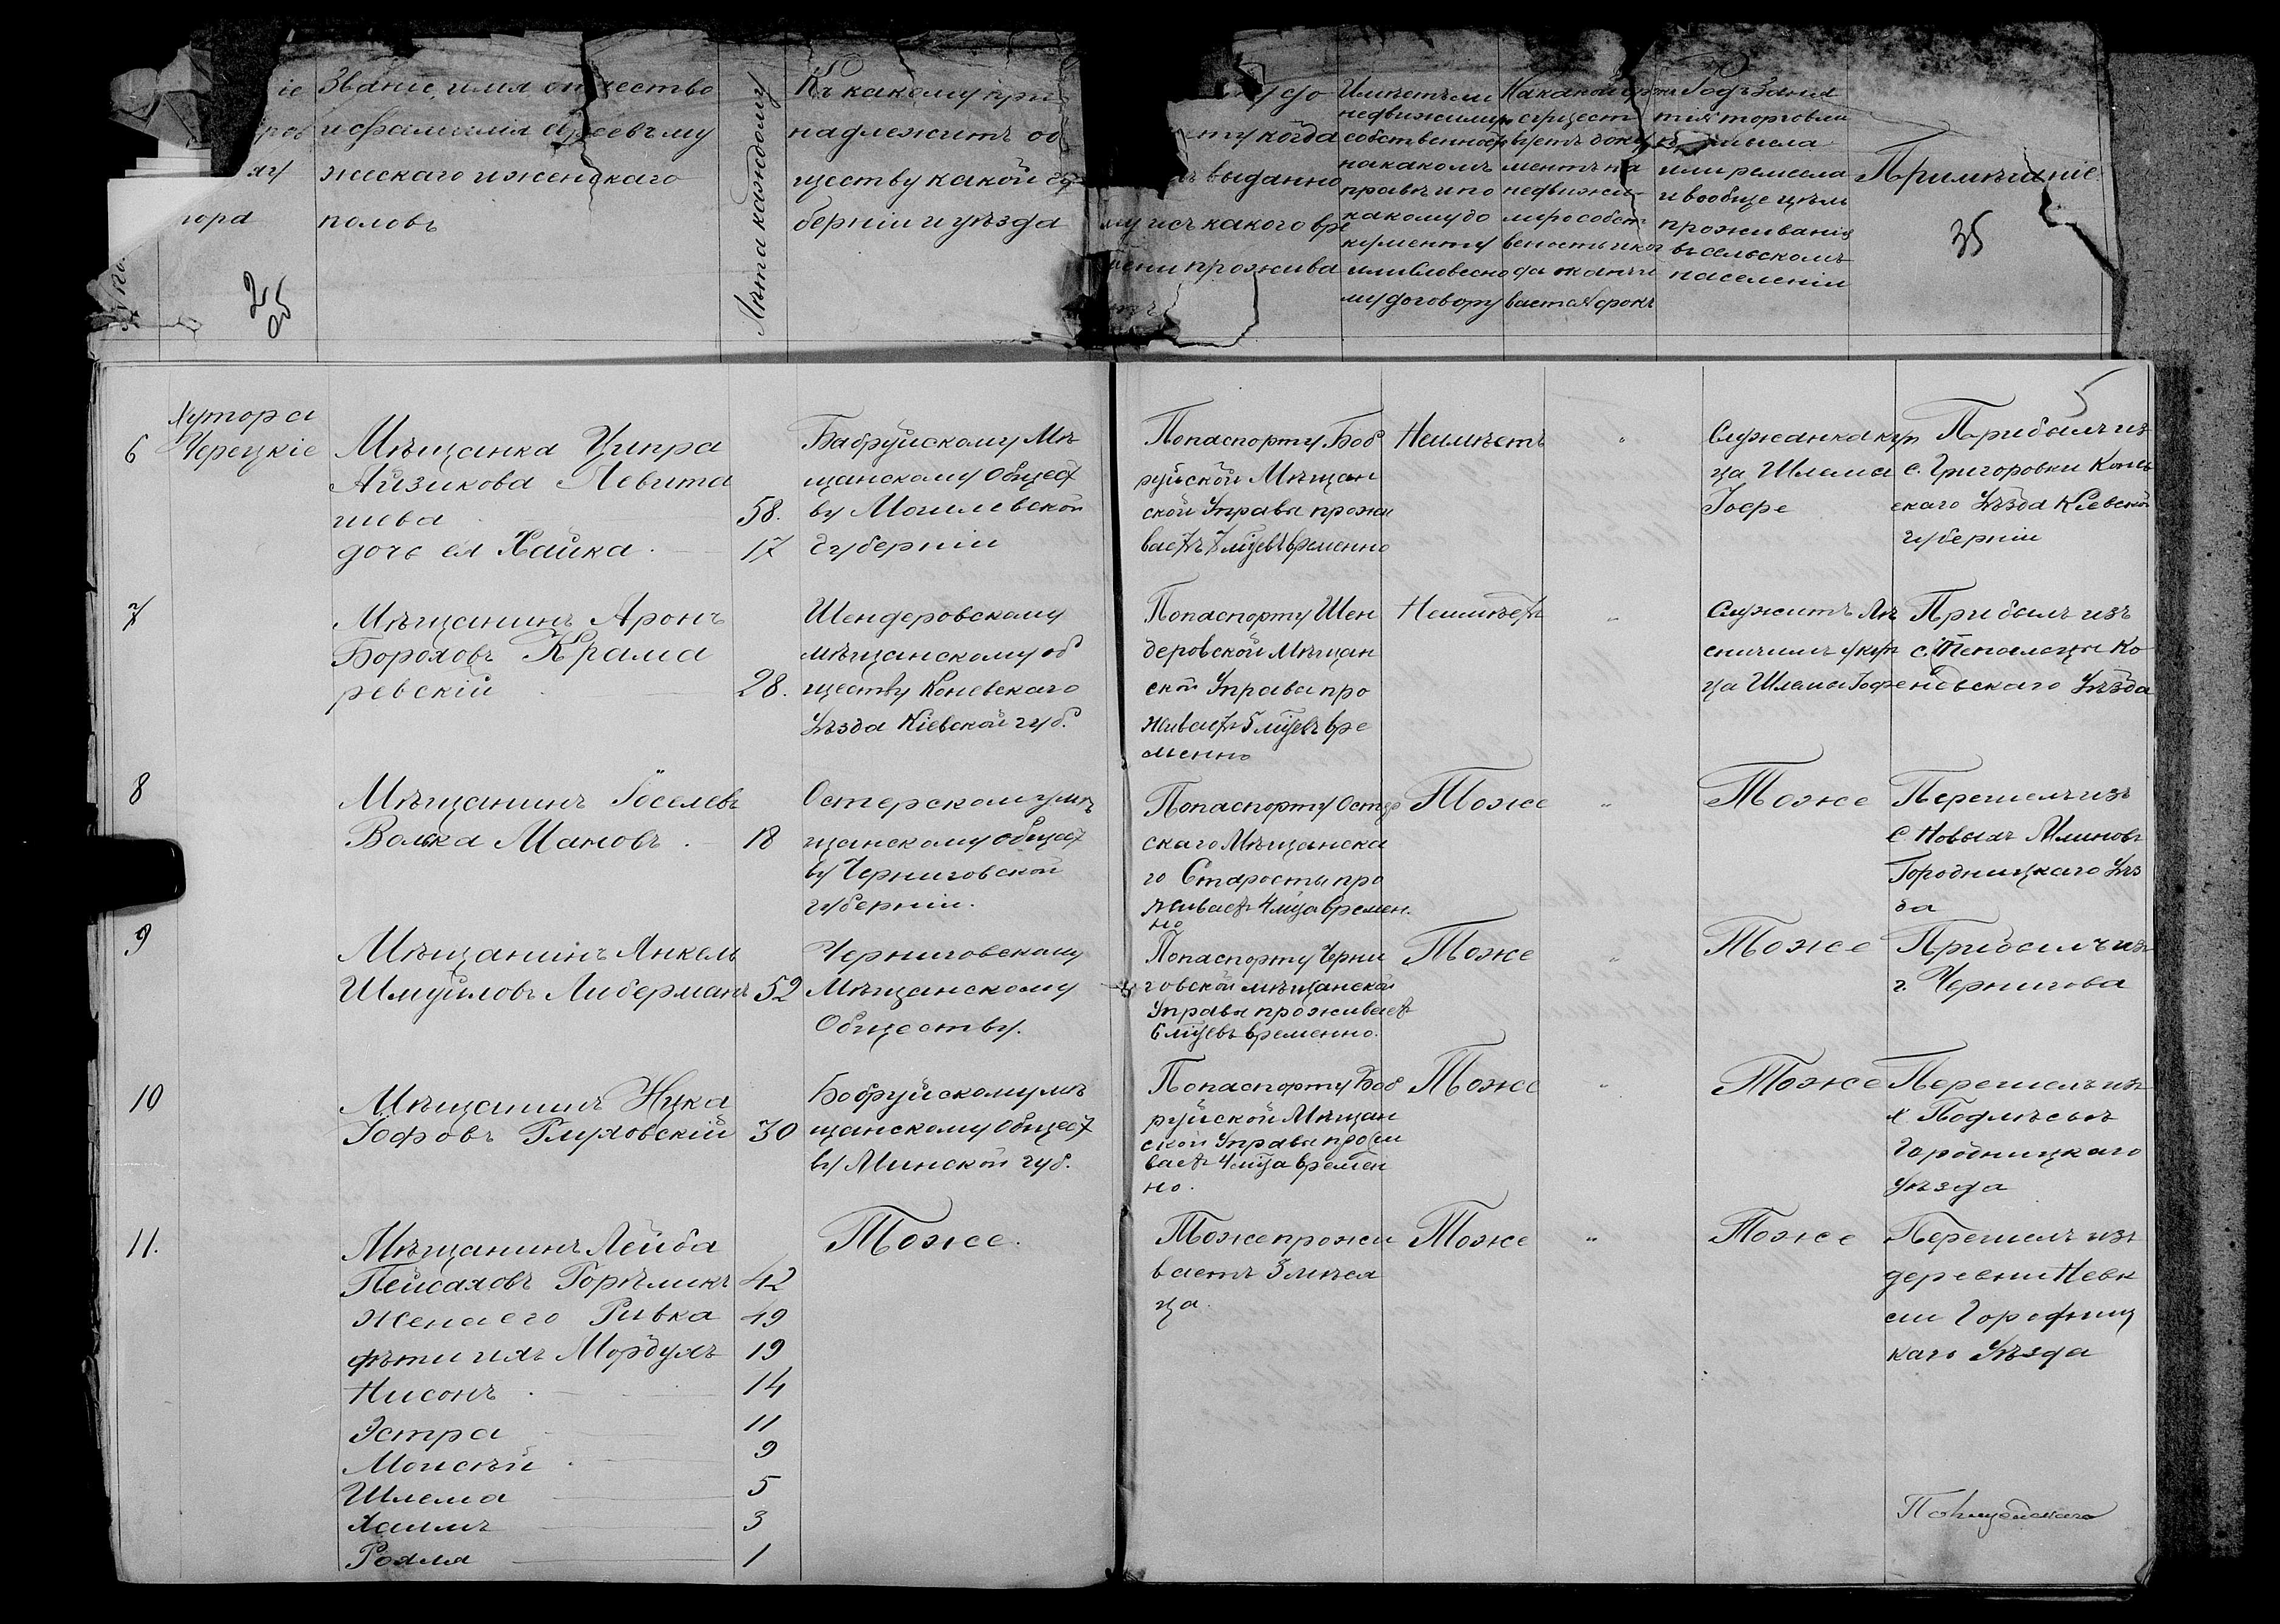 Званіе, имя отчество
и фамилія евреевъ му
жескаго и женскаго
половъ
Лѣта каждому
Къ какому при
надлежитъ об
ществу какой гу
берніи и уѣзда
когда
выданно
му и съ какого вре
мени прожива
етъ
Имѣетъ ли
недвижимую
собственность
на какомъ
правѣ и по
какому до
кументу
или словесно
му договору
На какой срокъ
существ
уетъ доку
ментъ на
недвижи
мую собст
веность и ког
да оканчи
вается срокъ
Родъ заня
тія торговли
промысла
или ремесла
и вообще цѣль
проживанія
въ сельскомъ
населеніи
Примѣчаніе
25
35
5
6
Хутора
Черецкіе
Мѣщанка Ципра
Айзикова Левита
нова
58.
дочь ея Хайка. 17
Бабруйскому Мѣ
щанскому Общест
ву Могилевской
Губерніи
По паспорту Боб
руйской Мѣщан
ской Управы прожи
ваетъ 7 мѣцевъ временно
Неимѣетъ
"
Служанка куп
ца Шлема
Іоффе
Прибылъ из
с. Григоровки Конев
скаго Уѣзда Кіевской
губерніи
7
Мѣщанинъ Аронъ
Бороховъ Крама
ревскій 28.
Шендеровскому
мѣщанскому об
ществу Коневскаго
Уѣзда Кіевской губ.
По паспорту Шен
деровской Мѣщан
ской Управы про
живаетъ 5 мѣцевъ вре
менно
Неимѣетъ
"
Служитъ Лѣ
сничимъ у куп
ца Шлема Іофе
Прибылъ изъ
Ко
невскаго Уѣзда
8
Мѣщанинъ Іоселевъ
Волька Мановъ. 18
Остерскому мѣ
щанскому общест
ву Черниговской
губерніи.
По паспорту Остер
скаго Мѣщанска
го Старосты про
живаетъ 4 мѣца времен.
но
Тоже
"
Тоже
Перешелъ изъ
с. Новыхъ Млиновъ
Городницкаго Уѣз
да
9
Мѣщанинъ Янкель
Шмуйловъ Либерманъ 52
Черниговскому
Мѣщанскому
Обществу.
По паспорту Черни
говской мѣщанской
Управы проживаетъ
6 мѣцевъ временно.
Тоже
"
Тоже
Прибылъ изъ
г. Чернигова
10
Мѣщанинъ Нцка
Іофовъ Глуховскій 30
Бобруйскому мѣ
щанскому общест
ву Минской губ.
По паспорту Боб
руйской Мѣщан
ской Управы прожи
ваетъ 4 мѣца времен
но.
Тоже
"
Тоже
Перешелъ изъ
х. Подлѣсья
Городницкаго
Уѣзда
11.
Мѣщанинъ Лейба
Пейсаховъ Горѣликъ 42
жена его Ривка 49
дѣти ихъ Мордухъ 19
Нисонъ 14
Эстра 11
Моисѣй 9
Шлема 5
Хаимъ 3
Рохля 1
Тоже.
Тоже прожи
ваетъ 3 мѣся
ца.
Тоже
"
Тоже
Перешелъ изъ
деревни Невк
ли Городниц
каго Уѣзда